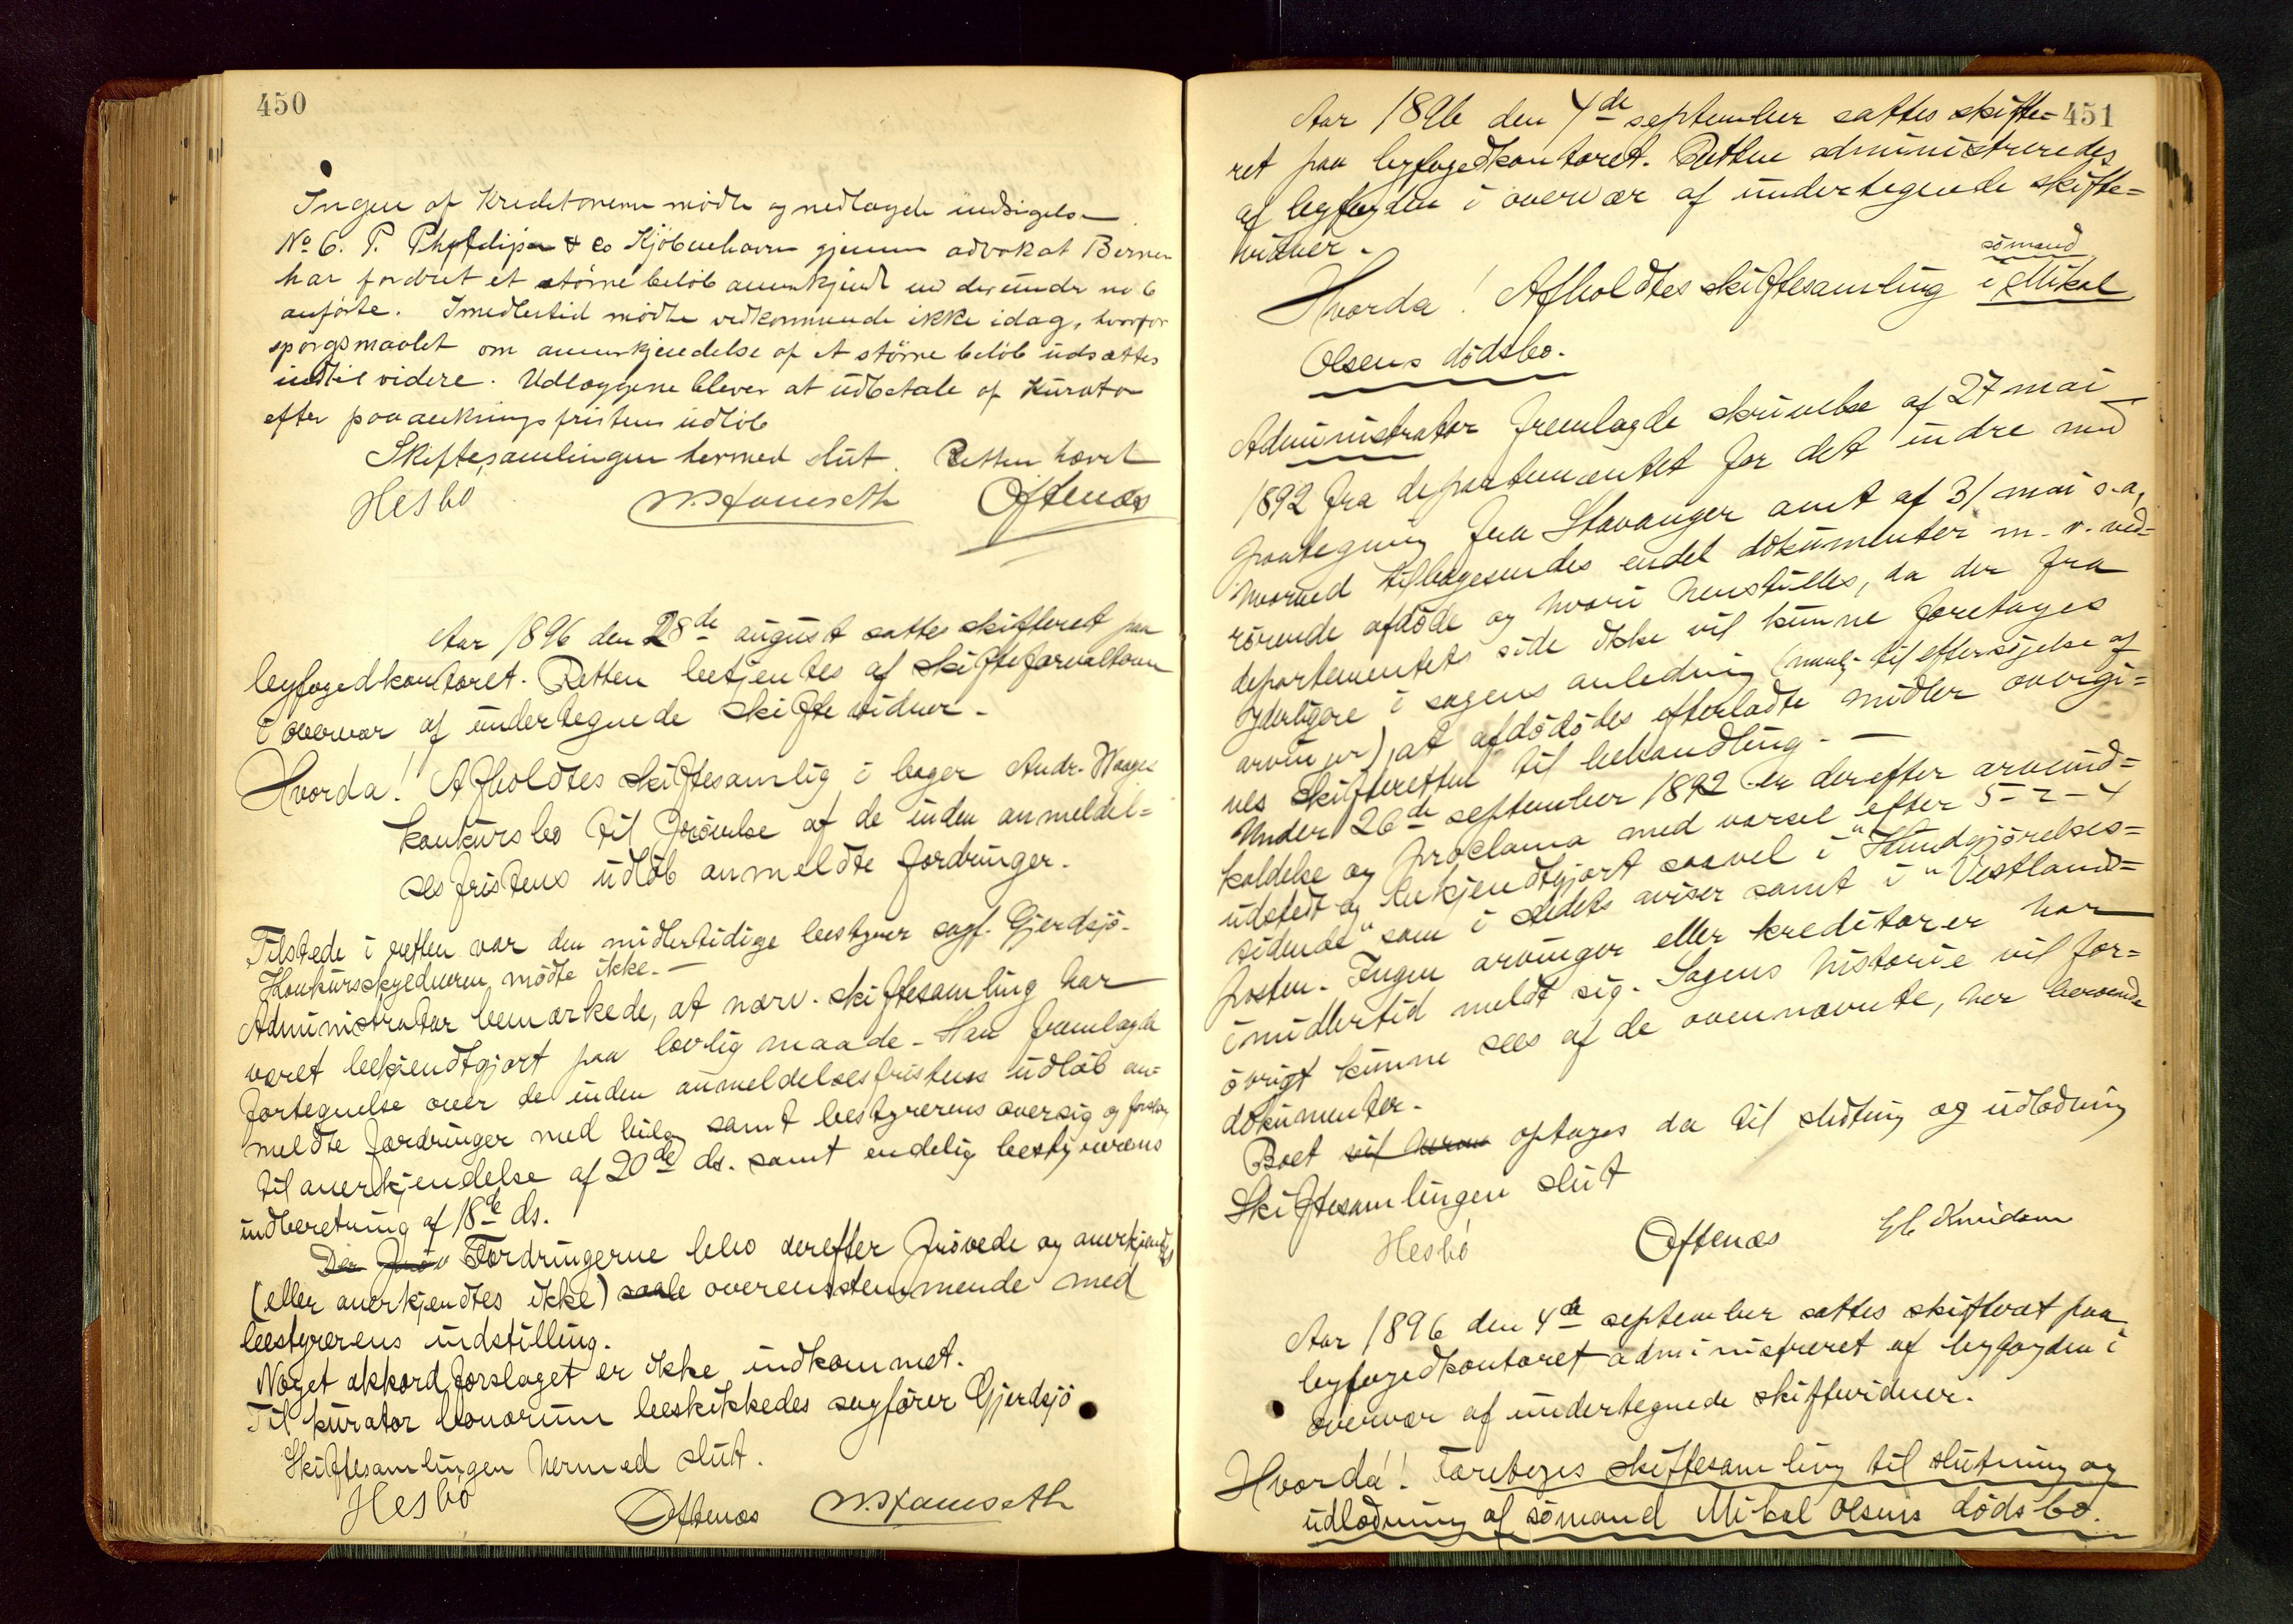 450
Ingen af Kreditorerne mödte og nedlagde indsigelse.
No 6. P. Philipsen & Co Kjöbenhavn gjennem advokat Berner
har fordret et större belöb anerkjendt end der under no 6
anförte. Imidlertid mödte vedkommende ikke idag, hvorfor
spörgsmaalet om anerkjendelse af et större belöb udsættes
indtil videre. Udlæggene bliver at udbetale af Kurator
efter paaankningsfristens udlöb
Skiftesamlingen hermed slut. Retten hævet
Hesbö Oftenæs
Aar 1896 den 28de august sattes skifteret paa
byfogedkontoret. Retten betjentes af skifteforvalteren
i overvær af undertegnede skiftevidner.
Hvorda! Afholdtes skiftesamlig i bager Andr. Waages
konkursbo til prövelse af de inden anmeldel=
sesfristens udlöb anmeldte fordringer.
Tilstede i retten var den midlertidige bestyrer sagf. Gjerdsjö.
Konkursskyldneren mödte ikke.
Administrator bemærkede, at nærv. skiftesamling har
været bekjendtgjort paa lovlig maade. Han fremlagde
fortegnelse over de inden anmeldelsesfristens udlöb an=
meldte fordringer med bilag samt bestyrerens oversig og forslag
til anerkjendelse af 20de ds. samt endelig bestyrerens
indberetning af 18de ds.
Der pröv Fordringerne blev derefter prövede og anerkjendtes
(eller anerkjendtes ikke) overensstemmende med
bestyrerens indstilling.
Noget akkordforslaget er ikke indkommet.
Til kurator bonorum beskikkedes sagförer Gjerdsjö
Skiftesamlingen hermed slut.
Hesbö Oftenæs
451
Aar 1896 den 4de september sattes skifte=
ret paa byfogedkontoret. Retten administreredes
af byfogden i overvær af undertegnede skifte=
vidner.
sömand
Hvorda! Afholdtes skiftesamling i Mikal
Olsens dödsbo.
Administrator fremlagde skrivelse af 27 mai
1892 fra departementet for det indre med
paategning fra Stavanger amt af 31 mai s.a,
hvorved tilbagesendes endel dokumenter m. v. ved=
rörende afdöde og hvori henstilles, da der fra
departementets side ikke vil kunne foretages
yderligere i sagens anledning (navnl. til eftersögelse af
arvinger), at afdödödes efterladte midler overgi=
ves skifteretten til behandling. —
Under 26de september 1892 er derefter arveind=
kaldelse og proclama med varsel efter 5-2-4
udstedt og bekjendtgjort saavel i "Kundgjörelses=
tidende" som i stedets aviser samt i "Vestlands=
posten. Ingen arvinger eller kreditorer har
imidlertid meldt sig. Sagens historie vil for=
övrigt kunne sees af de ovennævnte, her beroende
dokumenter.
Boet vil optages da til slutning og udlodning
Skiftesamlingen slut
Hesbö Oftenæs Knudsen
Aar 1896 den 4de september sattes skifteret paa
byfogedkontoret administreret af byfogden i
overvær af undertegnede skiftevidner.
Hvorda! Foretoges skiftesamling til slutning og
udlodning af sömand Mikal Olsens dödsbo.